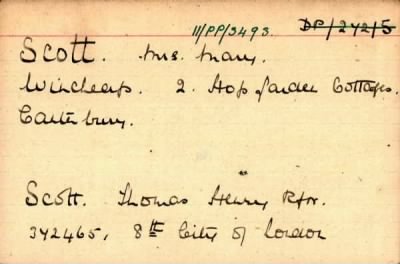 11/PP/3493. DP/24215
Scott. Mrs. Mary.
Wincheap. 2. Hop garden Cottages.
Canterbury.
Scott. Thomas Henry Rfn.
372465, 8th City of London